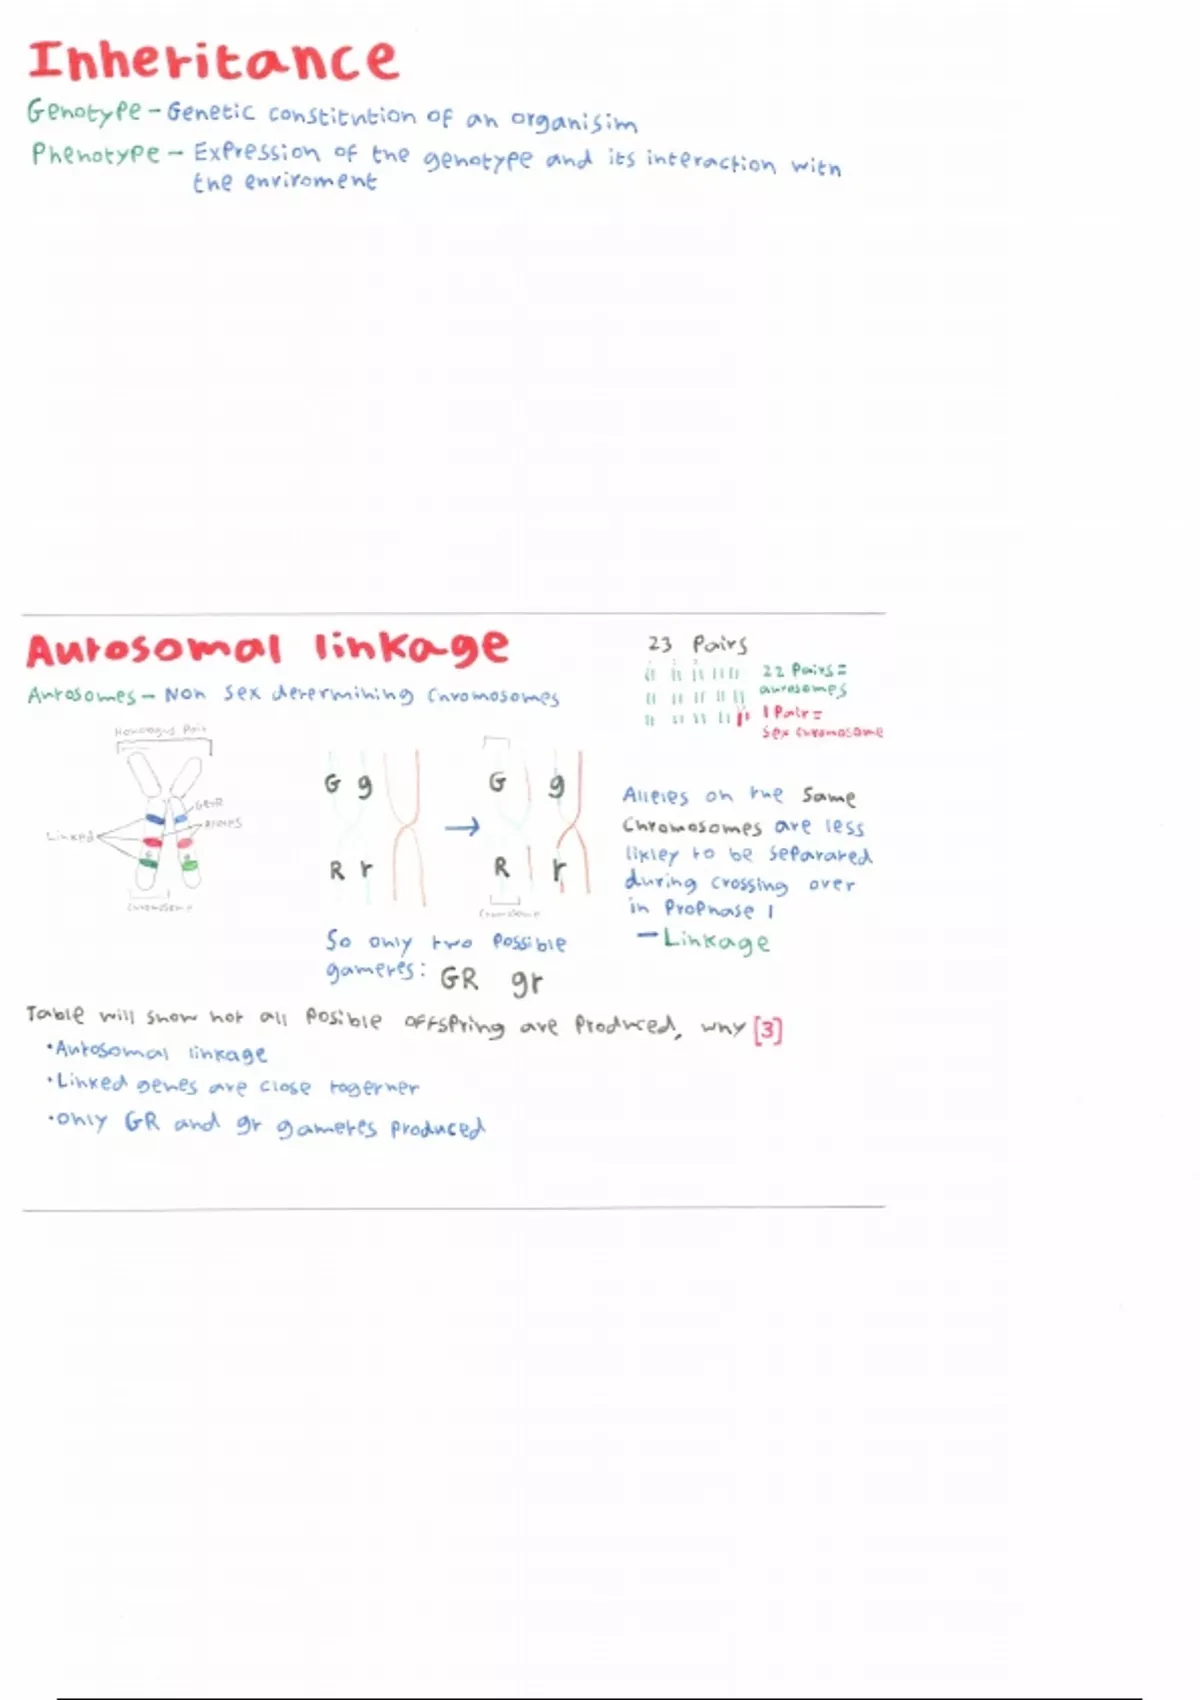 Inheritance
Genotype - Genetic constitution of an organisim
Phenotype - Expression of the genotype and its interaction with
the enviroment
Autosomal linkage
Autosomes - Non sex determining chromosomes
23 Pairs
22 Pairs =
autosomes
1 Pair =
sex chromosome
Homologus Pair
Linked
Chromosome
G g
R r
G g
R r
Chromosome
So only two possible
gametes: GR gr
Alleles on the same
chromosomes are less
likley to be separated
during crossing over
in Prophase 1
- Linkage
Table will show not all posible offspring are produced, why [3]
• Autosomal linkage
• Linked genes are close together
• only GR and gr gametes produced